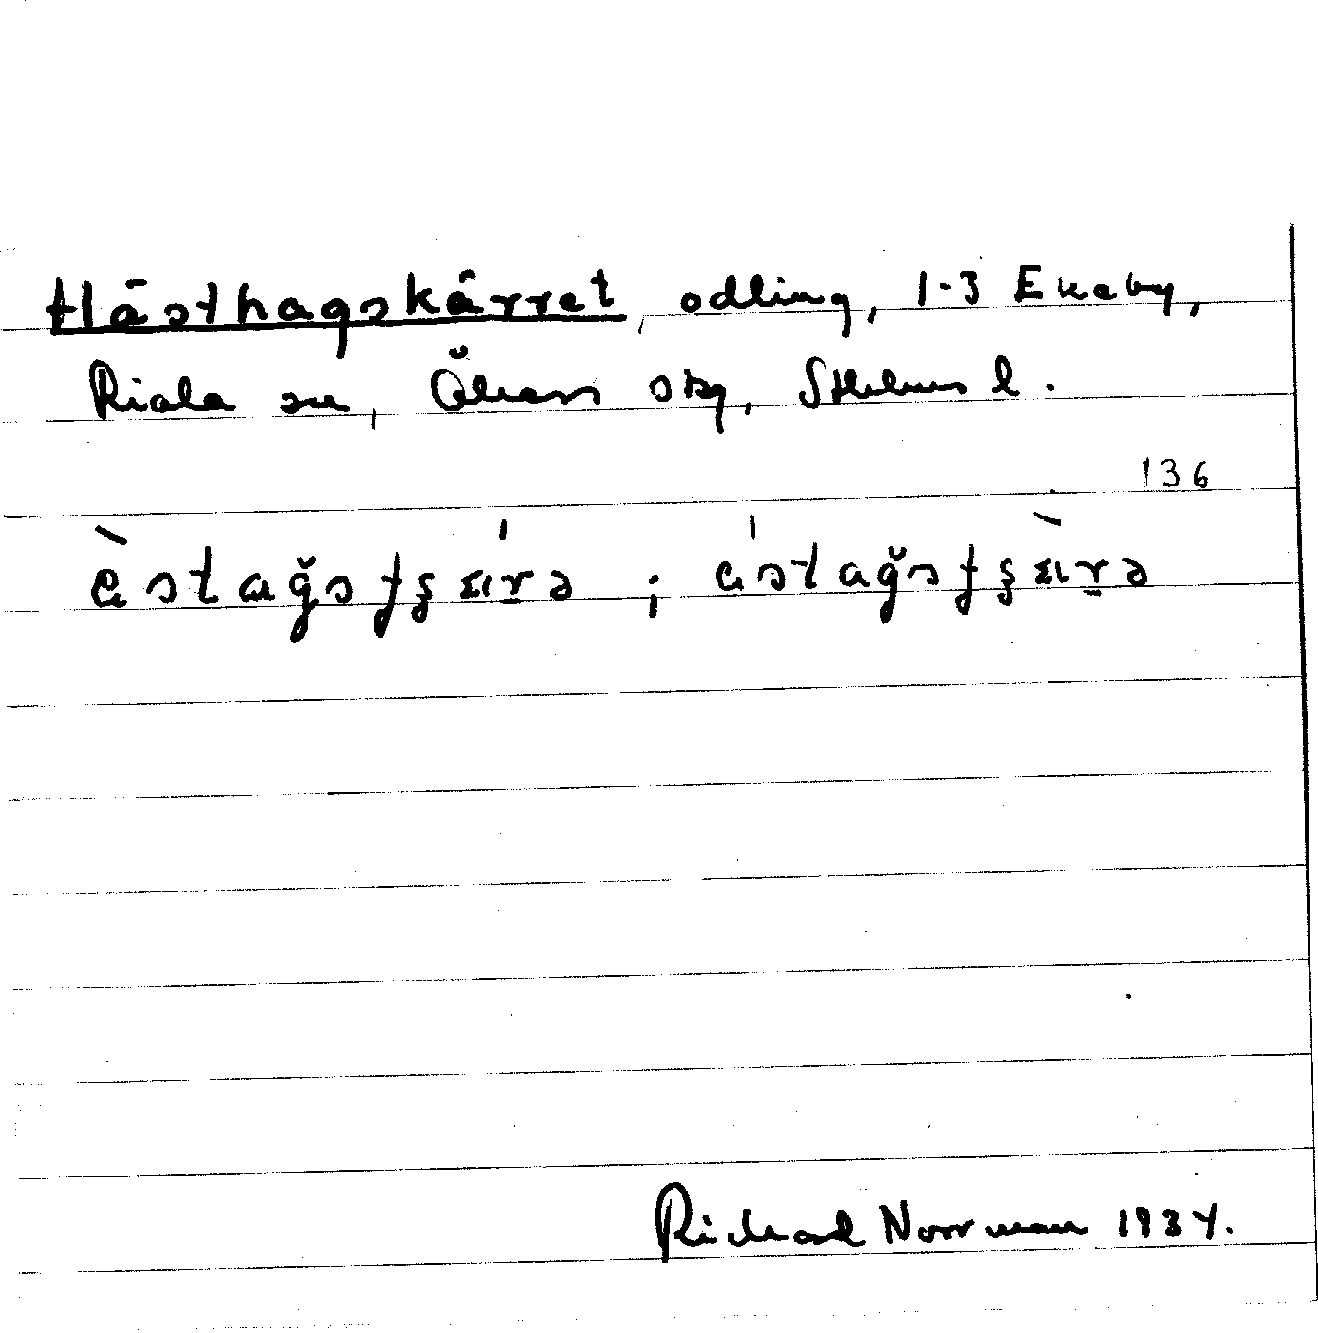 Hästhagskärret, odling, 1-3 Ekeby,
Riala sn, Åkers skg, Sthlms l.
136
Richard Norrman 1934.